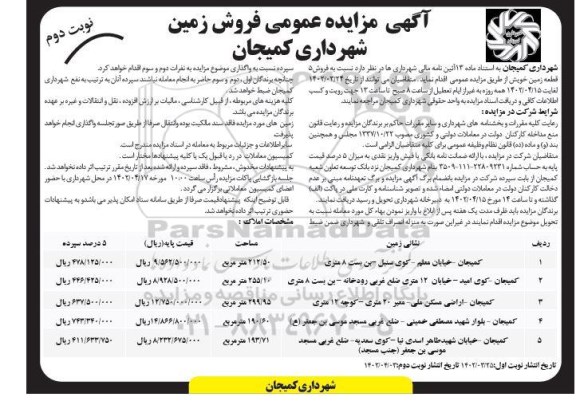 نوبت دوم
آگهی مزایده عمومی فروش زمین
شهرداری کمیجان
شهرداری کمیجان به استناد ماده ۱۳ آئین نامه مالی شهرداری ها در نظر دارد نسبت به فروش ۵
قطعه زمین خویش از طریق مزایده عمومی اقدام نماید. متقاضیان می توانند از تاریخ ۱۴۰۲/۰۳/۲۴
لغایت ۱۴۰۲/۰۴/۱۵ همه روزه به غیر از ایام تعطیل از ساعت ۸ صبح تا ساعت ۱۳ جهت رویت و کسب
اطلاعات کافی و دریافت اسناد مزایده به واحد حقوقی شهرداری کمیجان مراجعه نمایند.
شرایط شرکت در مزایده :
رعایت کلیه مقررات و بخشنامه های شهرداری و سایر مقررات حاکم بر برگزاری مزایده و رعایت قانون
منع مداخله کارکنان دولت در معاملات دولتی و کشوری مصوب ۱۳۳۷/۱۰/۲۲ مجلس و همچنین
بند (و) و ماده (ده) قانون نظام وظیفه عمومی برای کلیه متقاضیان الزامی است.
متقاضیان شرکت در مزایده، با ارائه ضمانت نامه بانکی یا فیش واریز نقدی به میزان ۵ درصد قیمت
کمیجان از بابت سپرده شرکت در مزایده بانضمام برگ آگهی مزایده و برگ تعهدنامه مبنی بر عدم
دخالت کارکنان دولت در معاملات دولتی امضاء شده و تصویر شناسنامه و کارت ملی در پاکت (الف)
گذاشته و تا ساعت ۱۴ مورخ ۱۴۰۲/۰۴/۱۵ به دبیرخانه شهرداری تحویل و رسید دریافت نمایند.
برندگان مزایده باید ظرف مدت یک هفته پس از ابلاغ با واریز نمودن بهاء کل مورد معامله نسبت به
تحویل مورد مزایده اقدام نمایند در غیر این صورت به منزله انصراف تلقی و شهرداری ضمن ضبط
سپرده نسبت به واگذاری موضوع مزایده به نفرات دوم و سوم اقدام خواهد کرد.
چنانچه برندگان اول، دوم و سوم حاضر به انجام معامله نباشند سپرده آنان به ترتیب به نفع شهرداری
کمیجان ضبط خواهد شد.
کلیه هزینه های مربوطه، از قبیل کارشناسی، مالیات بر ارزش افزوده، نقل و انتقالات و غیره بر عهده
برندگان مزایده می باشد.
زمین های مورد مزایده فاقد سند مالکیت بوده وانتقال صرفا از طریق صورتجلسه واگذاری انجام خواهد
پذیرفت
سایر اطلاعات و جزئیات مربوط به معامله در اسناد مزایده مندرج است.
کمیسیون معاملات در رد یا قبول یک یا کلیه پیشنهادها مختار است.
به پیشنهادات مخدوش، مشروط، فاقد سپرده و ارائه شده بعد از تاریخ مقرر ترتیب اثر داده نخواهد شد.
جلسه بازگشایی پاکت مزایده رأس ساعت ۱۰:۰۰ مورخه ۱۴۰۲/۰۴/۱۷ در محل شهرداری با حضور
اعضای کمیسیون معاملاتی برگزار می گردد.
قابل توضیح اینکه پیشنهاد قیمت صرفا از طریق سامانه ستاد امکان پذیر می باشد و به پیشنهادات
حضوری ترتیب اثر داده نخواهد شد.
مشخصات املاک :
ردیف نشانی زمین مساحت قیمت پایه(ریال) ۵ درصد سپرده
۱ کمیجان -خیابان معلم -کوی سنبل -بن بست ۸ متری ۲۱۲/۵۰ متر مربع ۹/۵۶۲/۵۰۰/۰۰۰ ریال ۴۷۸/۱۲۵/۰۰۰ ریال
۲ کمیجان -کوی امید - خیابان ۱۲ متری ضلع غربی رودخانه - بن بست ۸ متری ۲۵۵/۱۶ متر مربع ۸/۹۲۸/۵۰۰/۰۰۰ ریال ۴۴۶/۴۲۵/۰۰۰ ریال
۳ کمیجان -اراضی مسکن ملی- معبر ۲۰ متری - کوچه ۱۲ متری ۲۹۹/۹۵ متر مربع ۱۲/۷۵۰/۰۰۰/۰۰۰ ریال ۶۳۷/۵۰۰/۰۰۰ ریال
۴ کمیجان - بلوار شهید مصطفی خمینی - ضلع غربی مسجد موسی بن جعفر (ع) ۱۹۰/۶۰ متر مربع ۱۴/۸۶۶/۸۰۰/۰۰۰ ریال ۷۴۳/۳۴۰/۰۰۰ ریال
۵ کمیجان -خیابان شهید طاهر اسدی نیا -کوی سعدیه - ضلع غربی مسجد موسی بن جعفر (جنب مسجد) ۱۹۳/۷۱ متر مربع ۸/۲۳۲/۶۷۵/۰۰۰ ریال ۴۱۱/۶۳۳/۷۵۰ ریال
تاریخ انتشار نوبت اول: ۱۴۰۲/۰۳/۲۵ تاریخ انتشار نوبت دوم: ۱۴۰۲/۰۴/۰۳
شهرداری کمیجان
ParsNamadData
پایگاه اطلاع رسانی مناقصه و مزایده
۰۲۱-۸۸۳۴۹۶۷۰-۵